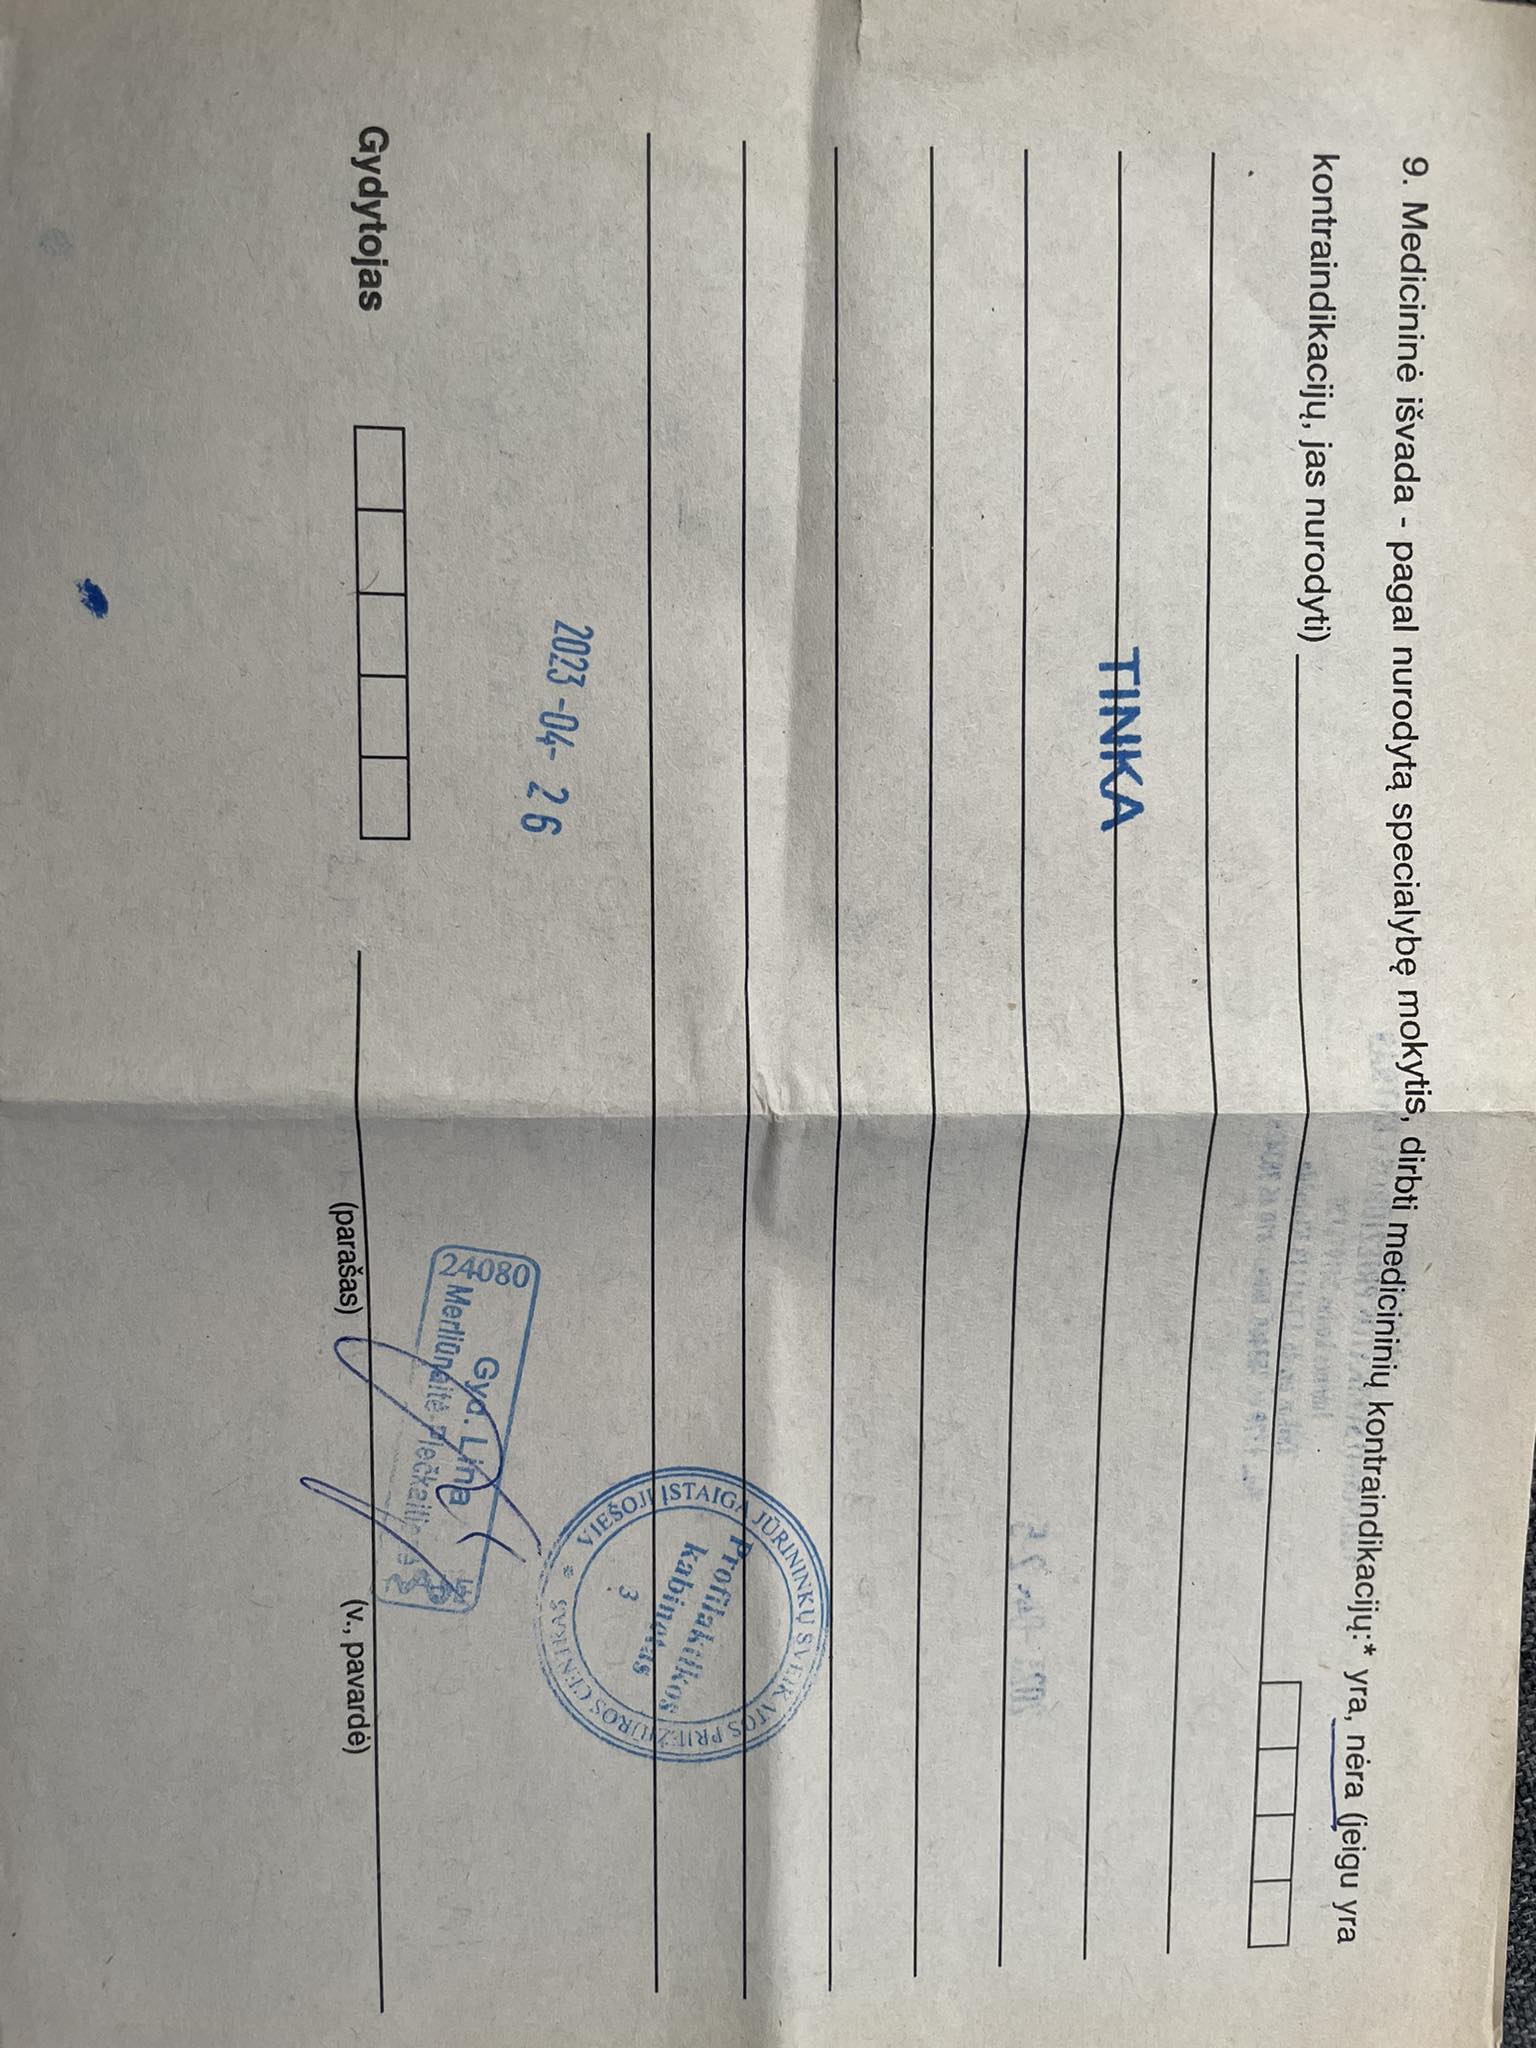 9. Medicininė išvada - pagal nurodytą specialybę mokytis, dirbti medicininių kontraindikacijų:* yra, nėra (jeigu yra
kontraindikacijų, jas nurodyti)
TINKA
2023-04-26
VIEŠOJI ĮSTAIGA JŪRININKŲ SVEIKATOS PRIEŽIŪROS CENTRAS *
Profilaktikos
kabinetas
3
24080
Gyd. Lina
Merliūnaitė
Gydytojas
(parašas)
(v., pavardė)